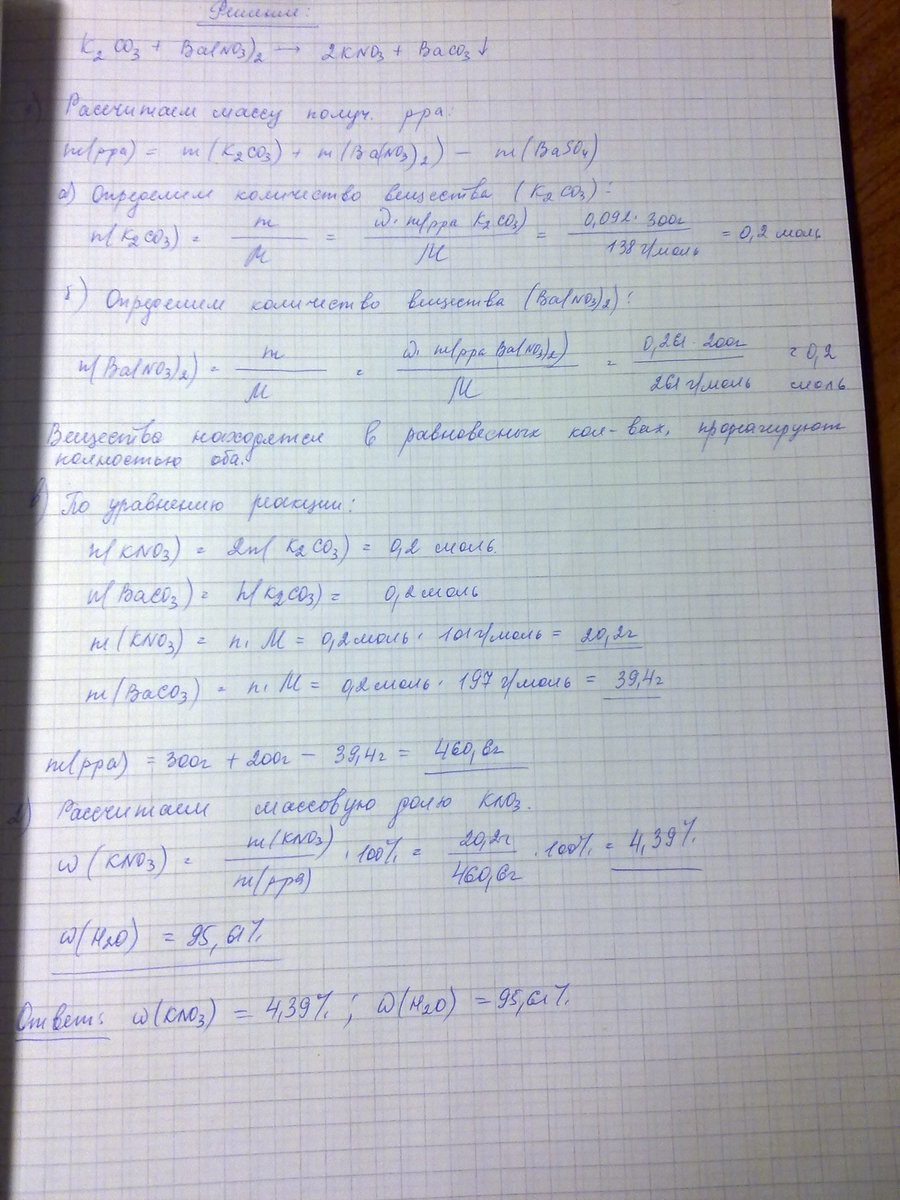 Решение:
K₂CO₃ + Ba(NO₃)₂ → 2KNO₃ + BaCO₃↓
1) Рассчитаем массу получ. рра:
m(рра) = m(K₂CO₃) + m(Ba(NO₃)₂) − m(BaSO₄)
а) Определим количество вещества (K₂CO₃):
n(K₂CO₃) = m/M = ω·m(рра K₂CO₃)/M = 0,092·300г/138 г/моль = 0,2 моль
б) Определяем количество вещества (Ba(NO₃)₂):
n(Ba(NO₃)₂) = m/M = ω·m(рра Ba(NO₃)₂)/M = 0,261·200г/261 г/моль = 0,2 моль
Вещества находятся в равновесных кол-вах, прореагируют
полностью оба.
в) По уравнению реакции:
n(KNO₃) = 2n(K₂CO₃) = 0,2 моль
n(BaCO₃) = n(K₂CO₃) = 0,2 моль
m(KNO₃) = n·M = 0,2 моль · 101 г/моль = 20,2г
m(BaCO₃) = n·M = 0,2 моль · 197 г/моль = 39,4г
m(рра) = 300г + 200г − 39,4г = 460,6г
2) Рассчитаем массовую долю KNO₃.
ω(KNO₃) = m(KNO₃)/m(рра) · 100% = 20,2г/460,6г · 100% = 4,39%
ω(H₂O) = 95,61%
Ответ: ω(KNO₃) = 4,39%; ω(H₂O) = 95,61%